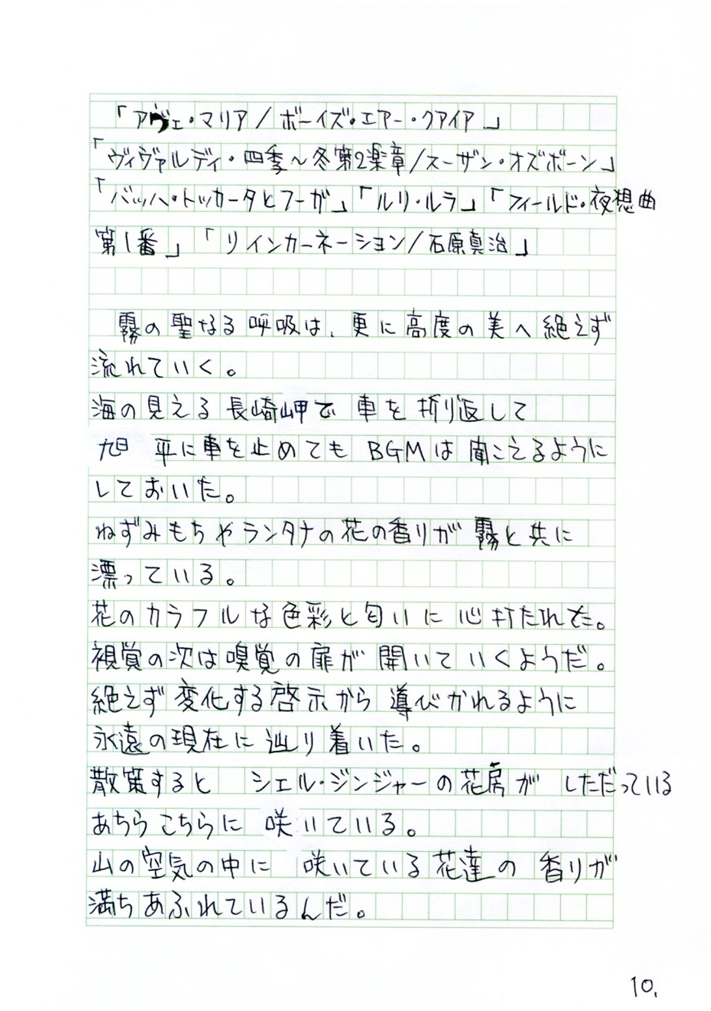 「アヴェ・マリア/ボーイズ・エアー・クァイア」
「ヴィヴァルディ・四季~冬第2楽章/スーザン・オズボーン」
「バッハ・トッカータとフーガ」「ルリ・ルラ」「フィールド・夜想曲
第1番」「リインカーネーション/石原真治」
霧の聖なる呼吸は、更に高度の美へ絶えず
流れていく。
海の見える長崎岬で車を折り返して
旭 平に車を止めてもBGMは聞こえるように
しておいた。
ねずみもちやランタナの花の香りが霧と共に
漂っている。
花のカラフルな色彩と匂いに心打たれた。
視覚の次は嗅覚の扉が開いていくようだ。
絶えず変化する啓示から導びかれるように
永遠の現在に辿り着いた。
散策すると シェル・ジンジャーの花房が しただっている
あちらこちらに 咲いている。
山の空気の中に 咲いている花達の香りが
満ちあふれているんだ。
10.